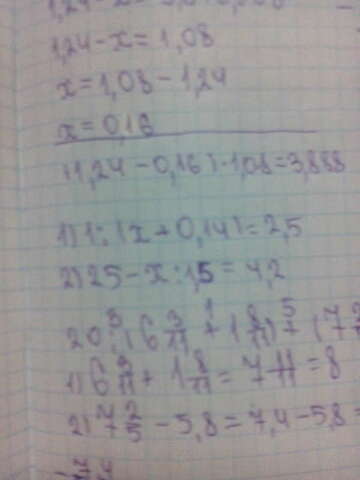 1,24 - x = 1,08
x = 1,08 - 1,24
x = 0,16
(1,24 - 0,16) · 1,08 = 3,888
1) 1 : (x + 0,14) = 2,5
2) 25 - x : 1,5 = 4,2
20 : (6 3/11 + 1 8/11) + (7
1) 6 3/11 + 1 8/11 = 7 11 = 8
2) 7 2/5 - 5,8 = 7,4 - 5,8 =
- 7,4